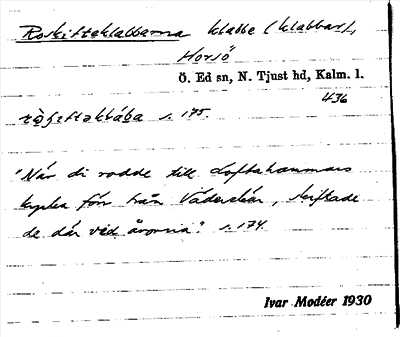 Roskifteklabbarna klabbe (klabbar),
Horsö
Ö. Ed sn, N. Tjust hd, Kalm. l.
436
s. 175.
"När di rodde till Loftahammars
kyrka förr från Väderskär, skiftade
de där vid årorna." s. 174.
Ivar Modéer 1930